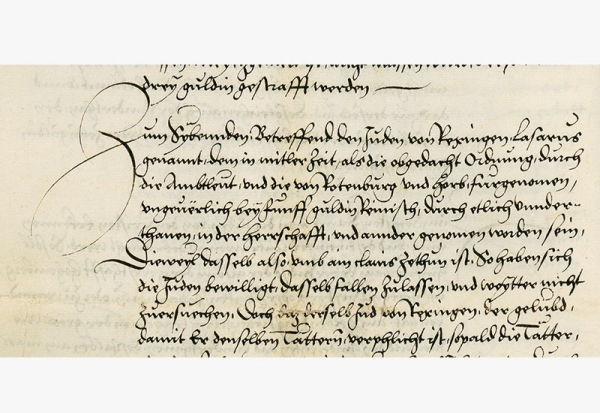 drey guldin gestrafft werden
Zum Sybennden, Betreffend den Juden von Rexingen, Lasarus
genannt, dem in mitler Zeit, als die obgedacht Ordnung, durch
die Ambtleut, und die von Rotenburg und Horb, fürgenomen,
ungevërlich bey fünff guldin Reinisch, durch etlich unnder-
thanen, in der herrschafft, und annder genomen worden sein,
Dieweyl dasselb also, umb am clains zethun ist, So haben sich
die Juden bewilligt, dasselb fallen zulassen, und weytter nicht
zuersuchen, Doch das derselb Jud von Rexingen, der gelübd,
damit Er denselben Tättern, verphlicht ist, sopald die Tätter,